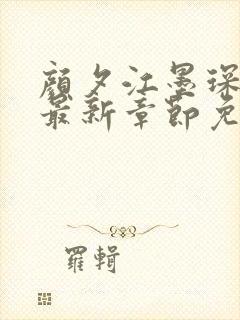 顏夕江墨琛
最新章節免
羅輯